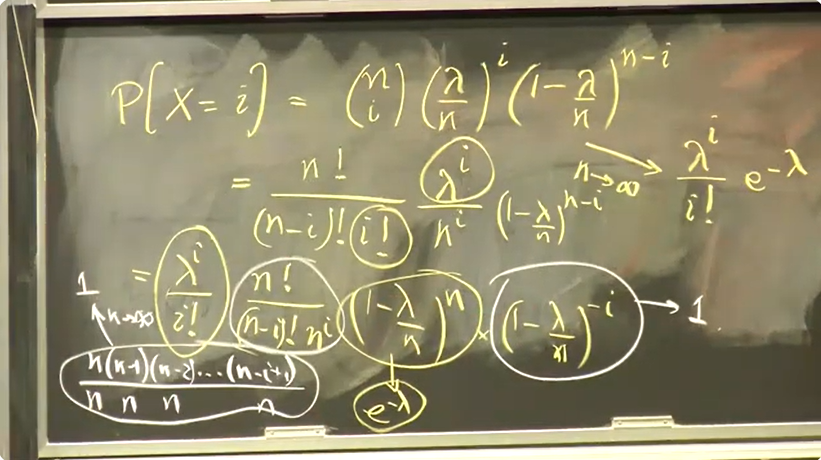 P[X = i] = (n i) (λ/n)^i (1 - λ/n)^{n-i}
= n!/((n-i)! i!) λ^i/n^i (1 - λ/n)^{n-i} → n→∞ λ^i/i! e^{-λ}
= λ^i/i! n!/((n-i)! n^i) (1 - λ/n)^n × (1 - λ/n)^{-i} → 1
1 ↑ n→∞
n(n-1)(n-2)...(n-i+1)/n n n n ↓ e^{-λ}